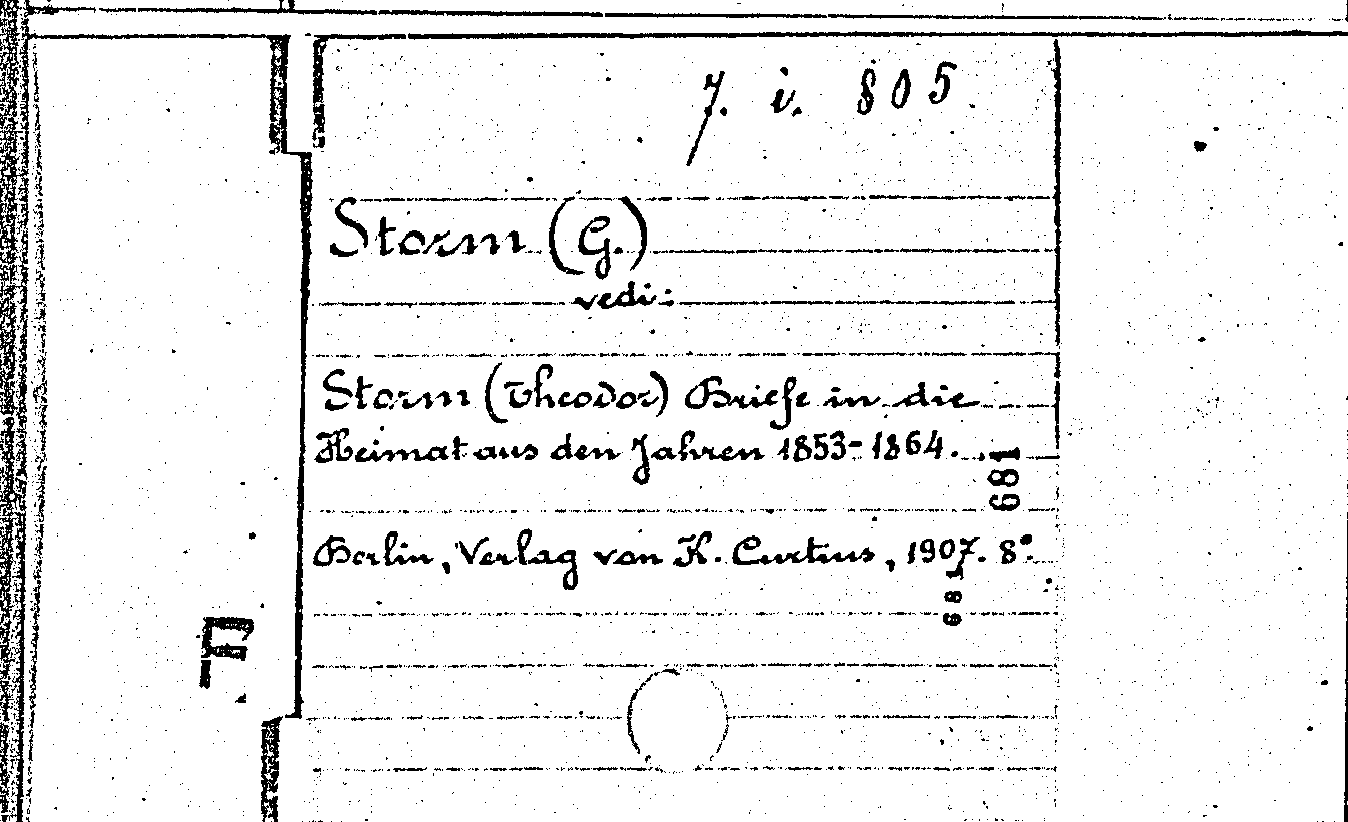 7. i. 805
Storm (G.)
vedi:
Storm (Theodor) Briefe in die
Heimat aus den Jahren 1853-1864.
681
Berlin, Verlag von K. Curtius, 1907. 8°.
681
F